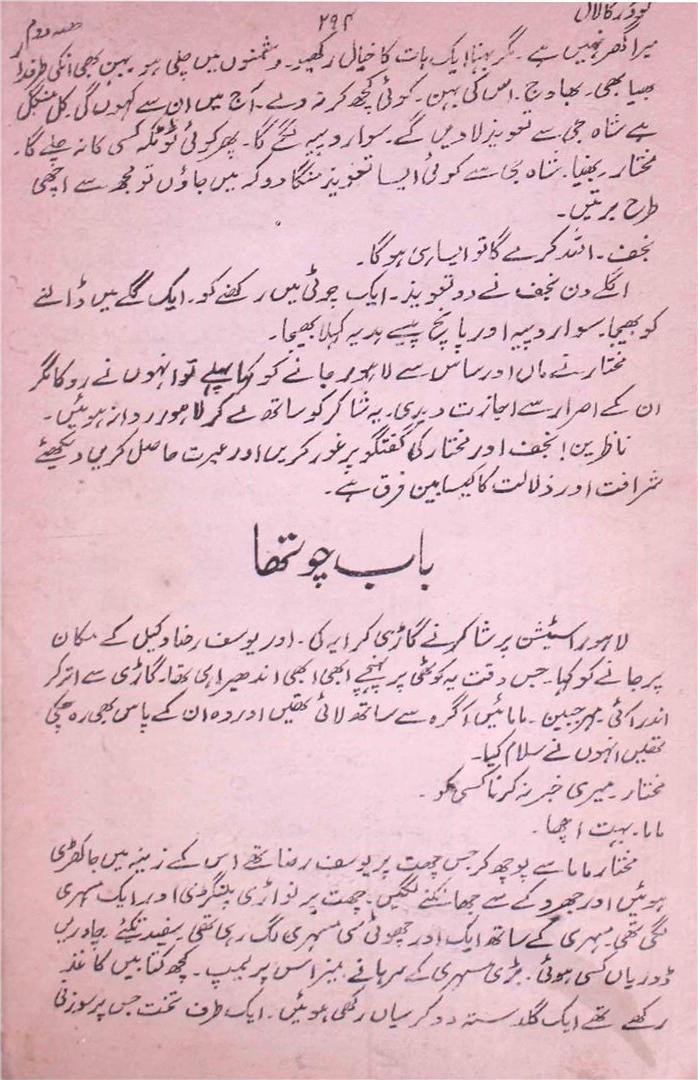 گودڑ کالال ۲۹۴ حصہ دوم
میرا گھر نہیں ہے ۔ مگر بہنا ایک بات کا خیال رکھیو ۔ دشمنوں میں چلی ہو بہن بھی انکی طرفدار
بھیا بھی ۔ بھاوج ۔ اس کی بہن ۔ کوئی کچھ کر نہ دے ۔ آج میں ان سے کہوں گی کل منگل
ہے شاہ جی سے تعویذ لا دیں گے ۔ سوا روپیہ لگے گا ۔ پھر کوئی ٹوٹکہ کسی کا نہ چلے گا ۔
مختار ۔ بھیا ۔ شاہ جی سے کوئی ایسا تعویذ منگا دو کہ میں جاؤں تو مجھ سے اچھی
طرح برتیں ۔
نجف ۔ اللہ کرے گا تو ایسا ہی ہو گا ۔
اگلے دن نجف نے دو تعویذ ۔ ایک چوٹی میں رکھنے کو ۔ ایک گلے میں ڈالنے
کو بھیجا ۔ سوا روپیہ اور پانچ پیسے ہدیہ کہلا بھیجا ۔
مختار نے ماں اور ساس سے لاہور جانے کو کہا پہلے تو انہوں نے روکا مگر
ان کے اصرار سے اجازت دیدی ۔ یہ شاکر کو ساتھ لے کر لاہور روانہ ہوئیں ۔
ناظرین ! نجف اور مختار کی گفتگو پر غور کریں اور عبرت حاصل کریں دیکھئے
شرافت اور ذلالت کا کیسا بین فرق ہے ۔
باب چوتھا
لاہور اسٹیشن پر شاکر نے گاڑی کرایہ کی ۔ اور یوسف رضا وکیل کے مکان
پر جانے کو کہا ۔ جس وقت یہ کوٹھی پر پہنچے ابھی ابھی اندھیرا ہی تھا ۔ گاڑی سے اتر کر
اندر آئی ۔ مہر جبین ۔ مامائیں آگرہ سے ساتھ لائی تھیں اور وہ ان کے پاس بھی رہ چکی
تھیں انہوں نے سلام کیا ۔
مختار ۔ میری خبر نہ کرنا کسی کو ۔
ماما ۔ بہت اچھا ۔
مختار ماما سے پوچھ کر جس چھت پر یوسف رضا تھے اس کے زینہ میں جا کھڑی
ہوئیں اور جھروکے سے جھانکنے لگیں ۔ چھت پر نواڑی پلنگڑی اور ایک مسہری
لگی تھی ۔ مسہری کے ساتھ ایک اور چھوٹی سی مسہری لگ رہی تھی ۔ سفید تکئے ۔ چادریں
ڈوریاں کسی ہوئی ۔ بڑی مسہری کے سرہانے میز اس پر لیمپ ۔ کچھ کتابیں کاغذ
رکھے تھے ایک گلدستہ دو کرسیاں رکھی ہوئیں ۔ ایک طرف تخت جس پر سوزنی